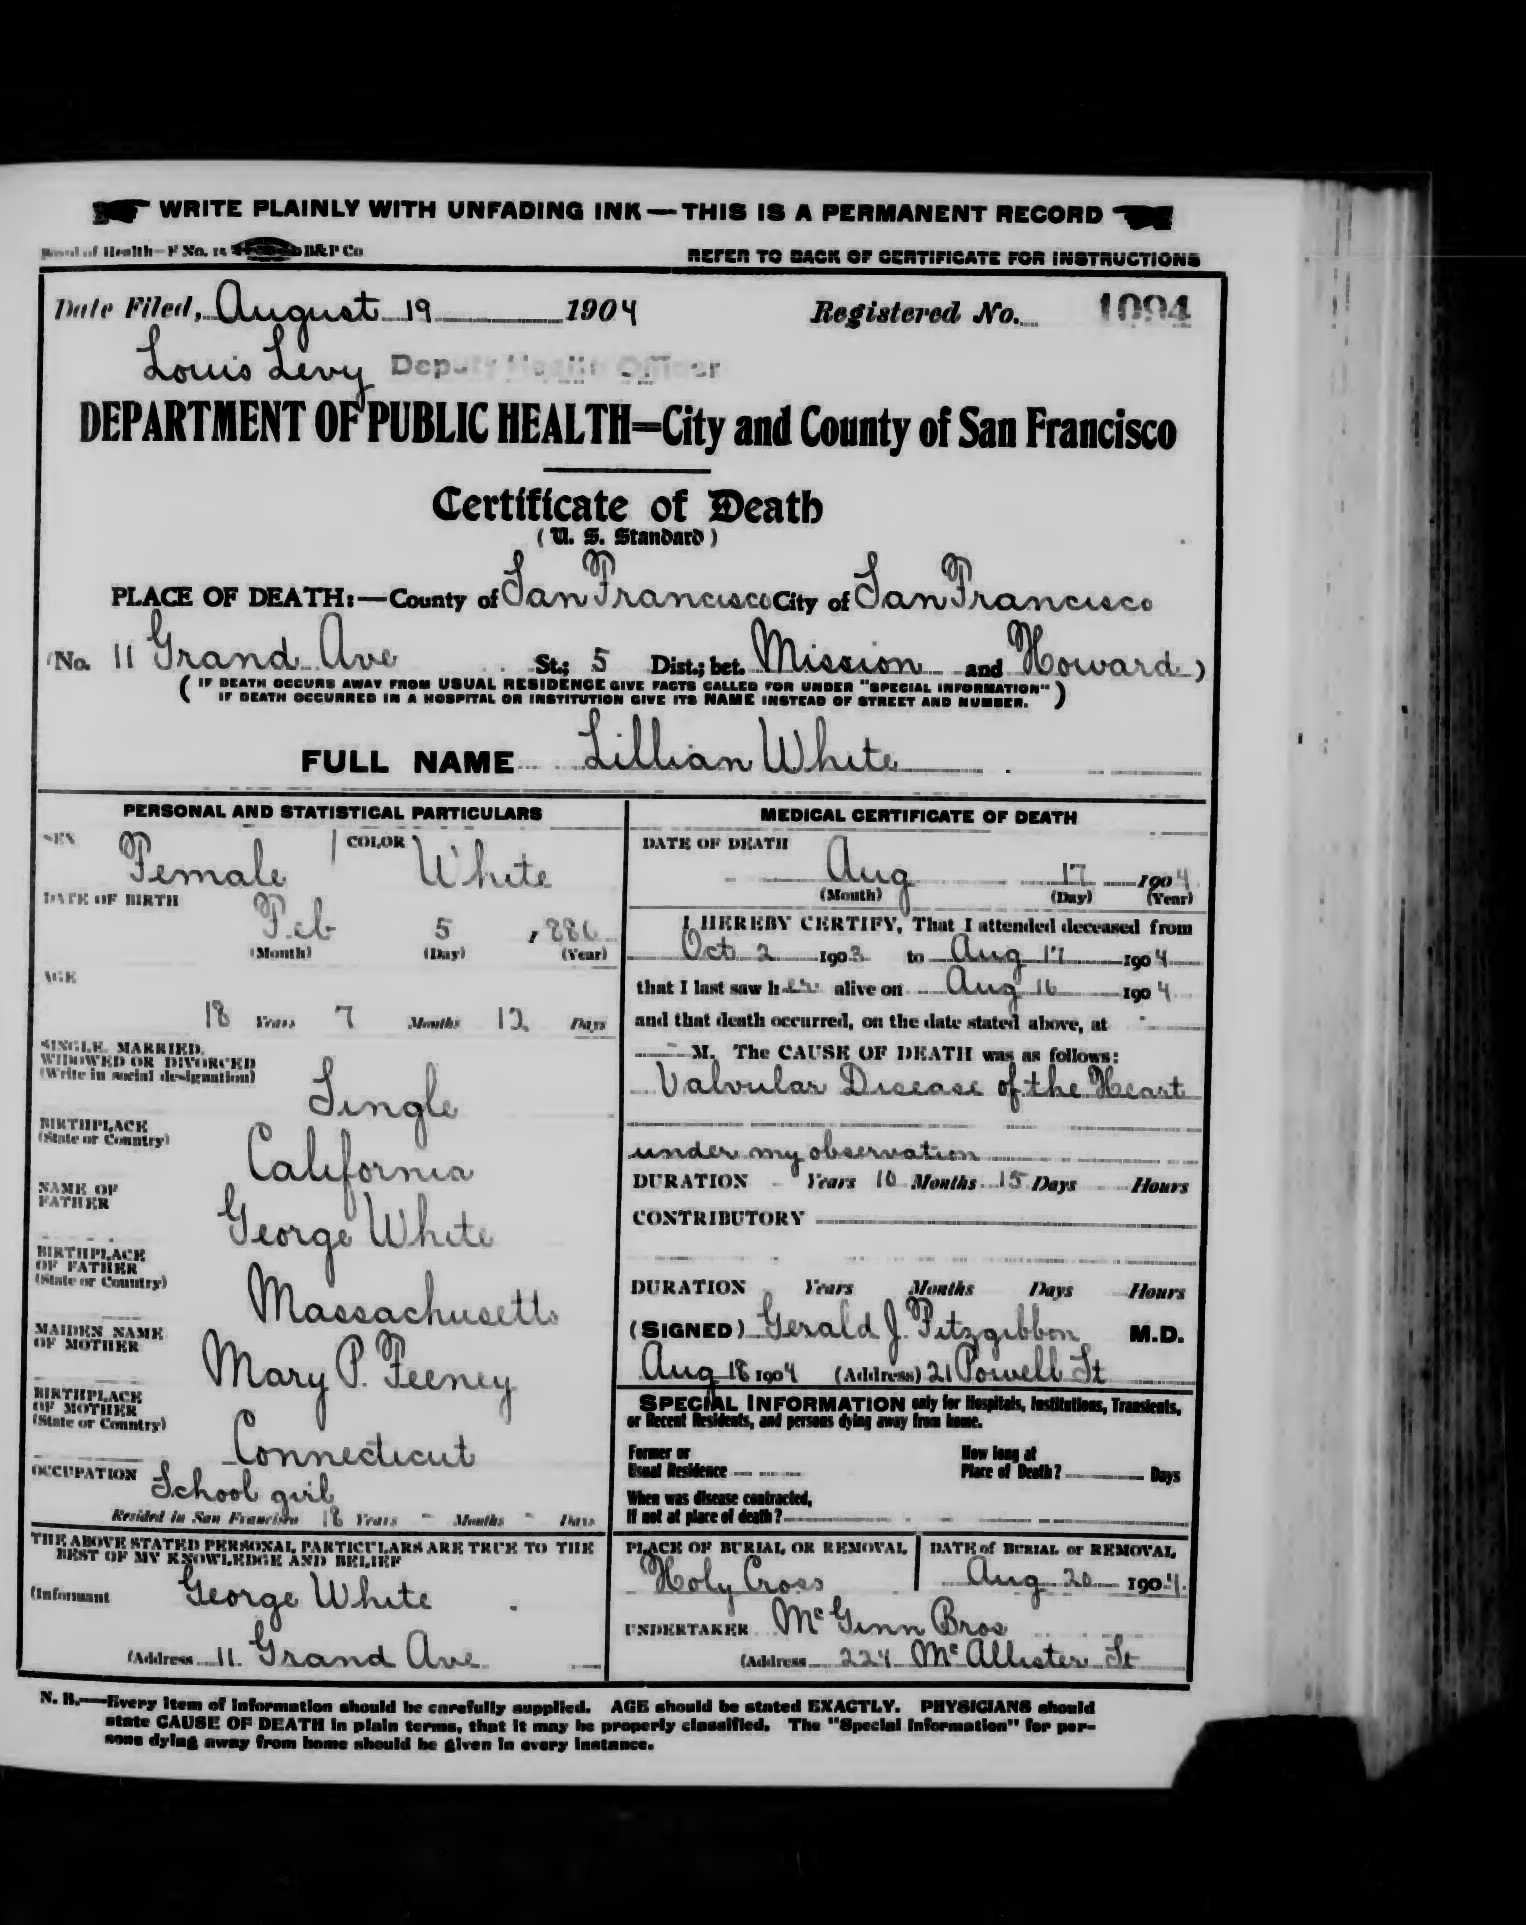 WRITE PLAINLY WITH UNFADING INK — THIS IS A PERMANENT RECORD
Board of Health—F No. 15 B&P Co
REFER TO BACK OF CERTIFICATE FOR INSTRUCTIONS
Date Filed, August 19 1904 Registered No. 1094
Louis Levy Deputy Health Officer
DEPARTMENT OF PUBLIC HEALTH=City and County of San Francisco
Certificate of Death
( U. S. Standard )
PLACE OF DEATH:—County of San Francisco City of San Francisco
(No. 11 Grand Ave St.; 5 Dist.; bet. Mission and Howard )
( IF DEATH OCCURS AWAY FROM USUAL RESIDENCE GIVE FACTS CALLED FOR UNDER "SPECIAL INFORMATION"
IF DEATH OCCURRED IN A HOSPITAL OR INSTITUTION GIVE ITS NAME INSTEAD OF STREET AND NUMBER. )
FULL NAME Lillian White
PERSONAL AND STATISTICAL PARTICULARS
SEX Female COLOR White
DATE OF BIRTH
Feb 5 , 886
(Month) (Day) (Year)
AGE
18 Years 7 Months 12 Days
SINGLE, MARRIED,
WIDOWED OR DIVORCED
(Write in social designation)
Single
BIRTHPLACE
(State or Country)
California
NAME OF
FATHER
George White
BIRTHPLACE
OF FATHER
(State or Country)
Massachusetts
MAIDEN NAME
OF MOTHER
Mary P. Feeney
BIRTHPLACE
OF MOTHER
(State or Country)
Connecticut
OCCUPATION School girl
Resided in San Francisco 18 Years - Months - Days
THE ABOVE STATED PERSONAL PARTICULARS ARE TRUE TO THE
BEST OF MY KNOWLEDGE AND BELIEF
(Informant George White
(Address 11 Grand Ave
MEDICAL CERTIFICATE OF DEATH
DATE OF DEATH
Aug 17 1904
(Month) (Day) (Year)
I HEREBY CERTIFY, That I attended deceased from
Oct 2 1903 to Aug 17 1904
that I last saw her alive on Aug 16 1904
and that death occurred, on the date stated above, at -
- M. The CAUSE OF DEATH was as follows:
Valvular Disease of the Heart
under my observation
DURATION - Years 10 Months 15 Days Hours
CONTRIBUTORY
DURATION Years Months Days Hours
(SIGNED) Gerald J. Fitzgibbon M.D.
Aug 18 1904 (Address) 21 Powell St
SPECIAL INFORMATION only for Hospitals, Institutions, Transients,
or Recent Residents, and persons dying away from home.
Former or How long at
Usual Residence Place of Death? Days
When was disease contracted,
If not at place of death?
PLACE OF BURIAL OR REMOVAL DATE of BURIAL or REMOVAL
Holy Cross Aug 20 1904
UNDERTAKER McGinn Bros
(Address 224 McAllister St
N. B.—Every item of information should be carefully supplied. AGE should be stated EXACTLY. PHYSICIANS should
state CAUSE OF DEATH in plain terms, that it may be properly classified. The "Special Information" for per-
sons dying away from home should be given in every instance.